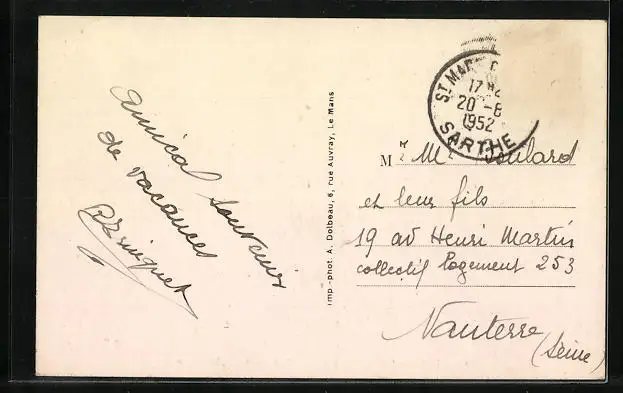 Amical souvenir
de vacances
Imp.-phot. A. Dolbeau, 6, rue Auvray, Le Mans
ST MAR
17 H
20 -8
1952
SARTHE
Mr Me
et leur fils
19 av Henri Martin
collectif logement 253
Nanterre
(Seine)